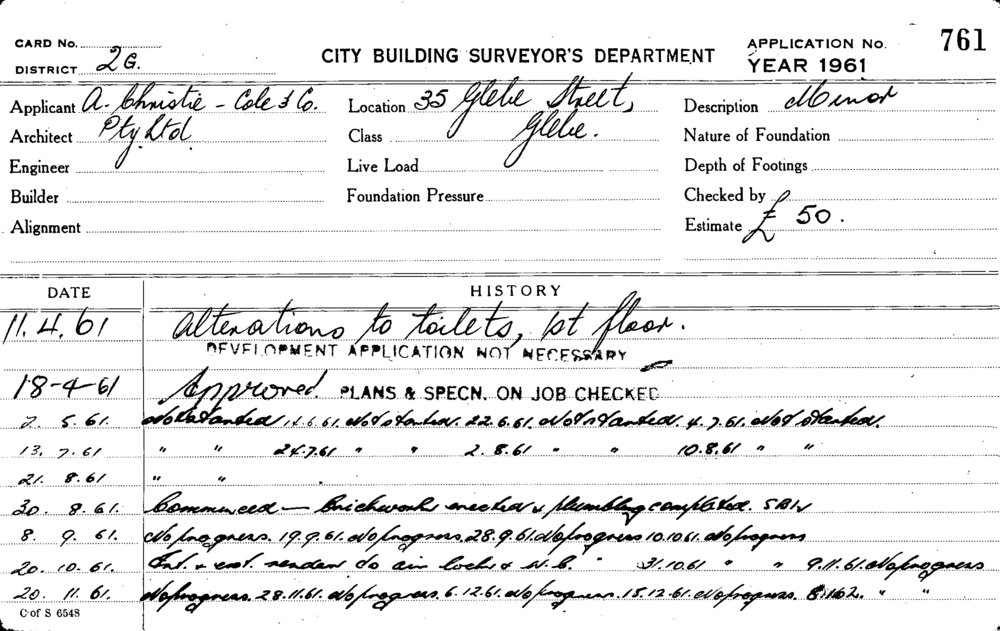 CARD No.
DISTRICT 2G.
CITY BUILDING SURVEYOR'S DEPARTMENT
APPLICATION No. 761
YEAR 1961
Applicant A. Christie - Cole & Co.
Architect Pty Ltd
Engineer
Builder
Alignment
Location 35 Glebe Street,
Class Glebe.
Live Load
Foundation Pressure
Description Minor
Nature of Foundation
Depth of Footings
Checked by
Estimate £ 50.
DATE HISTORY
11.4.61 Alterations to toilets, 1st floor.
DEVELOPMENT APPLICATION NOT NECESSARY
18-4-61 Approved. PLANS & SPECN. ON JOB CHECKED
2. 5.61. Not started 1.6.61. Not started. 22.6.61. Not started. 4.7.61. Not started.
13. 7.61 " " 24.7.61 " " 2.8.61 " " 10.8.61 " "
21. 8.61 " "
30. 8.61. Commenced — Brickwork erected & plumbing completed.
8. 9. 61. No progress. 19.9.61. No progress. 28.9.61. No progress 10.10.61. No progress
20. 10. 61. Int. & ext. render to air lock & W.C. 31.10.61 " " 9.11.61. No progress
20. 11. 61. No progress. 28.11.61. No progress. 6.12.61. No progress. 18.12.61. No progress. 8.1.62. " "
C of S 6548